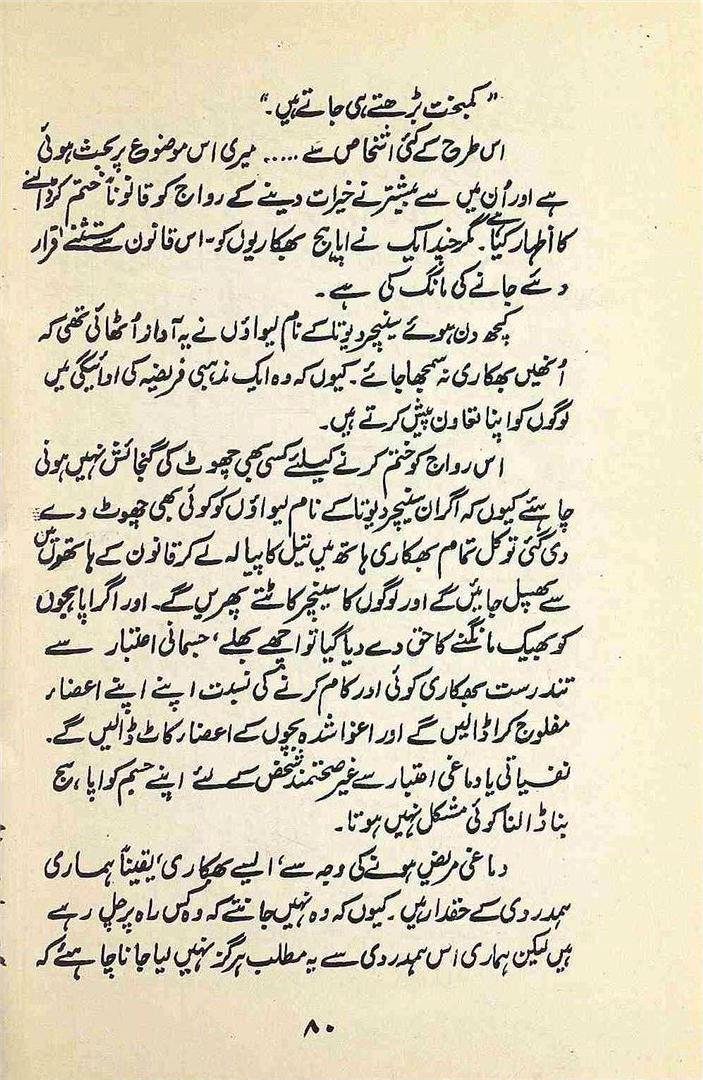 ”کمبخت بڑھتے ہی جاتے ہیں۔“
اس طرح کے کئی اشخاص سے ..... میری اس موضوع پر بحث ہوئی
ہے اور اُن میں سے بیشتر نے خیرات دینے کے رواج کو قانوناً ختم کر ڈالنے
کا اظہار کیا ہے۔ مگر چند ایک نے اپاہج بھکاریوں کو۔ اس قانون سے مستثنےٰ قرار
دئے جانے کی مانگ کی ہے۔
کچھ دن ہوئے سینچر دیوتا کے نام لیواؤں نے یہ آواز اُٹھائی تھی کہ
اُنھیں بھکاری نہ سمجھا جائے۔ کیوں کہ وہ ایک مذہبی فریضہ کی ادائیگی میں
لوگوں کو اپنا تعاون پیش کرتے ہیں۔
اس رواج کو ختم کرنے کیلئے کسی بھی چھوٹ کی گنجائش نہیں ہونی
چاہئے کیوں کہ اگر ان سینچر دیوتا کے نام لیواؤں کو کوئی بھی چھوٹ دے
دی گئی تو کل تمام بھکاری ہاتھ میں تیل کا پیالہ لے کر قانون کے ہاتھوں میں
سے پھسل جائیں گے اور لوگوں کا سینچر کاٹتے پھریں گے۔ اور اگر اپاہجوں
کو بھیک مانگنے کا حق دے دیا گیا تو اچھے بھلے‘ جسمانی اعتبار سے
تندرست بھکاری کوئی اور کام کرنے کی نسبت اپنے اپنے اعضاء
مفلوج کرا ڈالیں گے اور اغوا شدہ بچوں کے اعضاء کاٹ ڈالیں گے۔
نفسیاتی یا دماغی اعتبار سے غیر صحتمند شخص کے لئے اپنے جسم کو اپاہج
بنا ڈالنا کوئی مشکل نہیں ہوتا۔
دماغی مریض ہونے کی وجہ سے‘ ایسے بھکاری‘ یقیناً ہماری
ہمدردی کے حقدار ہیں۔ کیوں کہ وہ نہیں جانتے کہ وہ کس راہ پر چل رہے
ہیں لیکن ہماری اس ہمدردی سے یہ مطلب ہرگز نہیں لیا جانا چاہئے کہ
۸۰